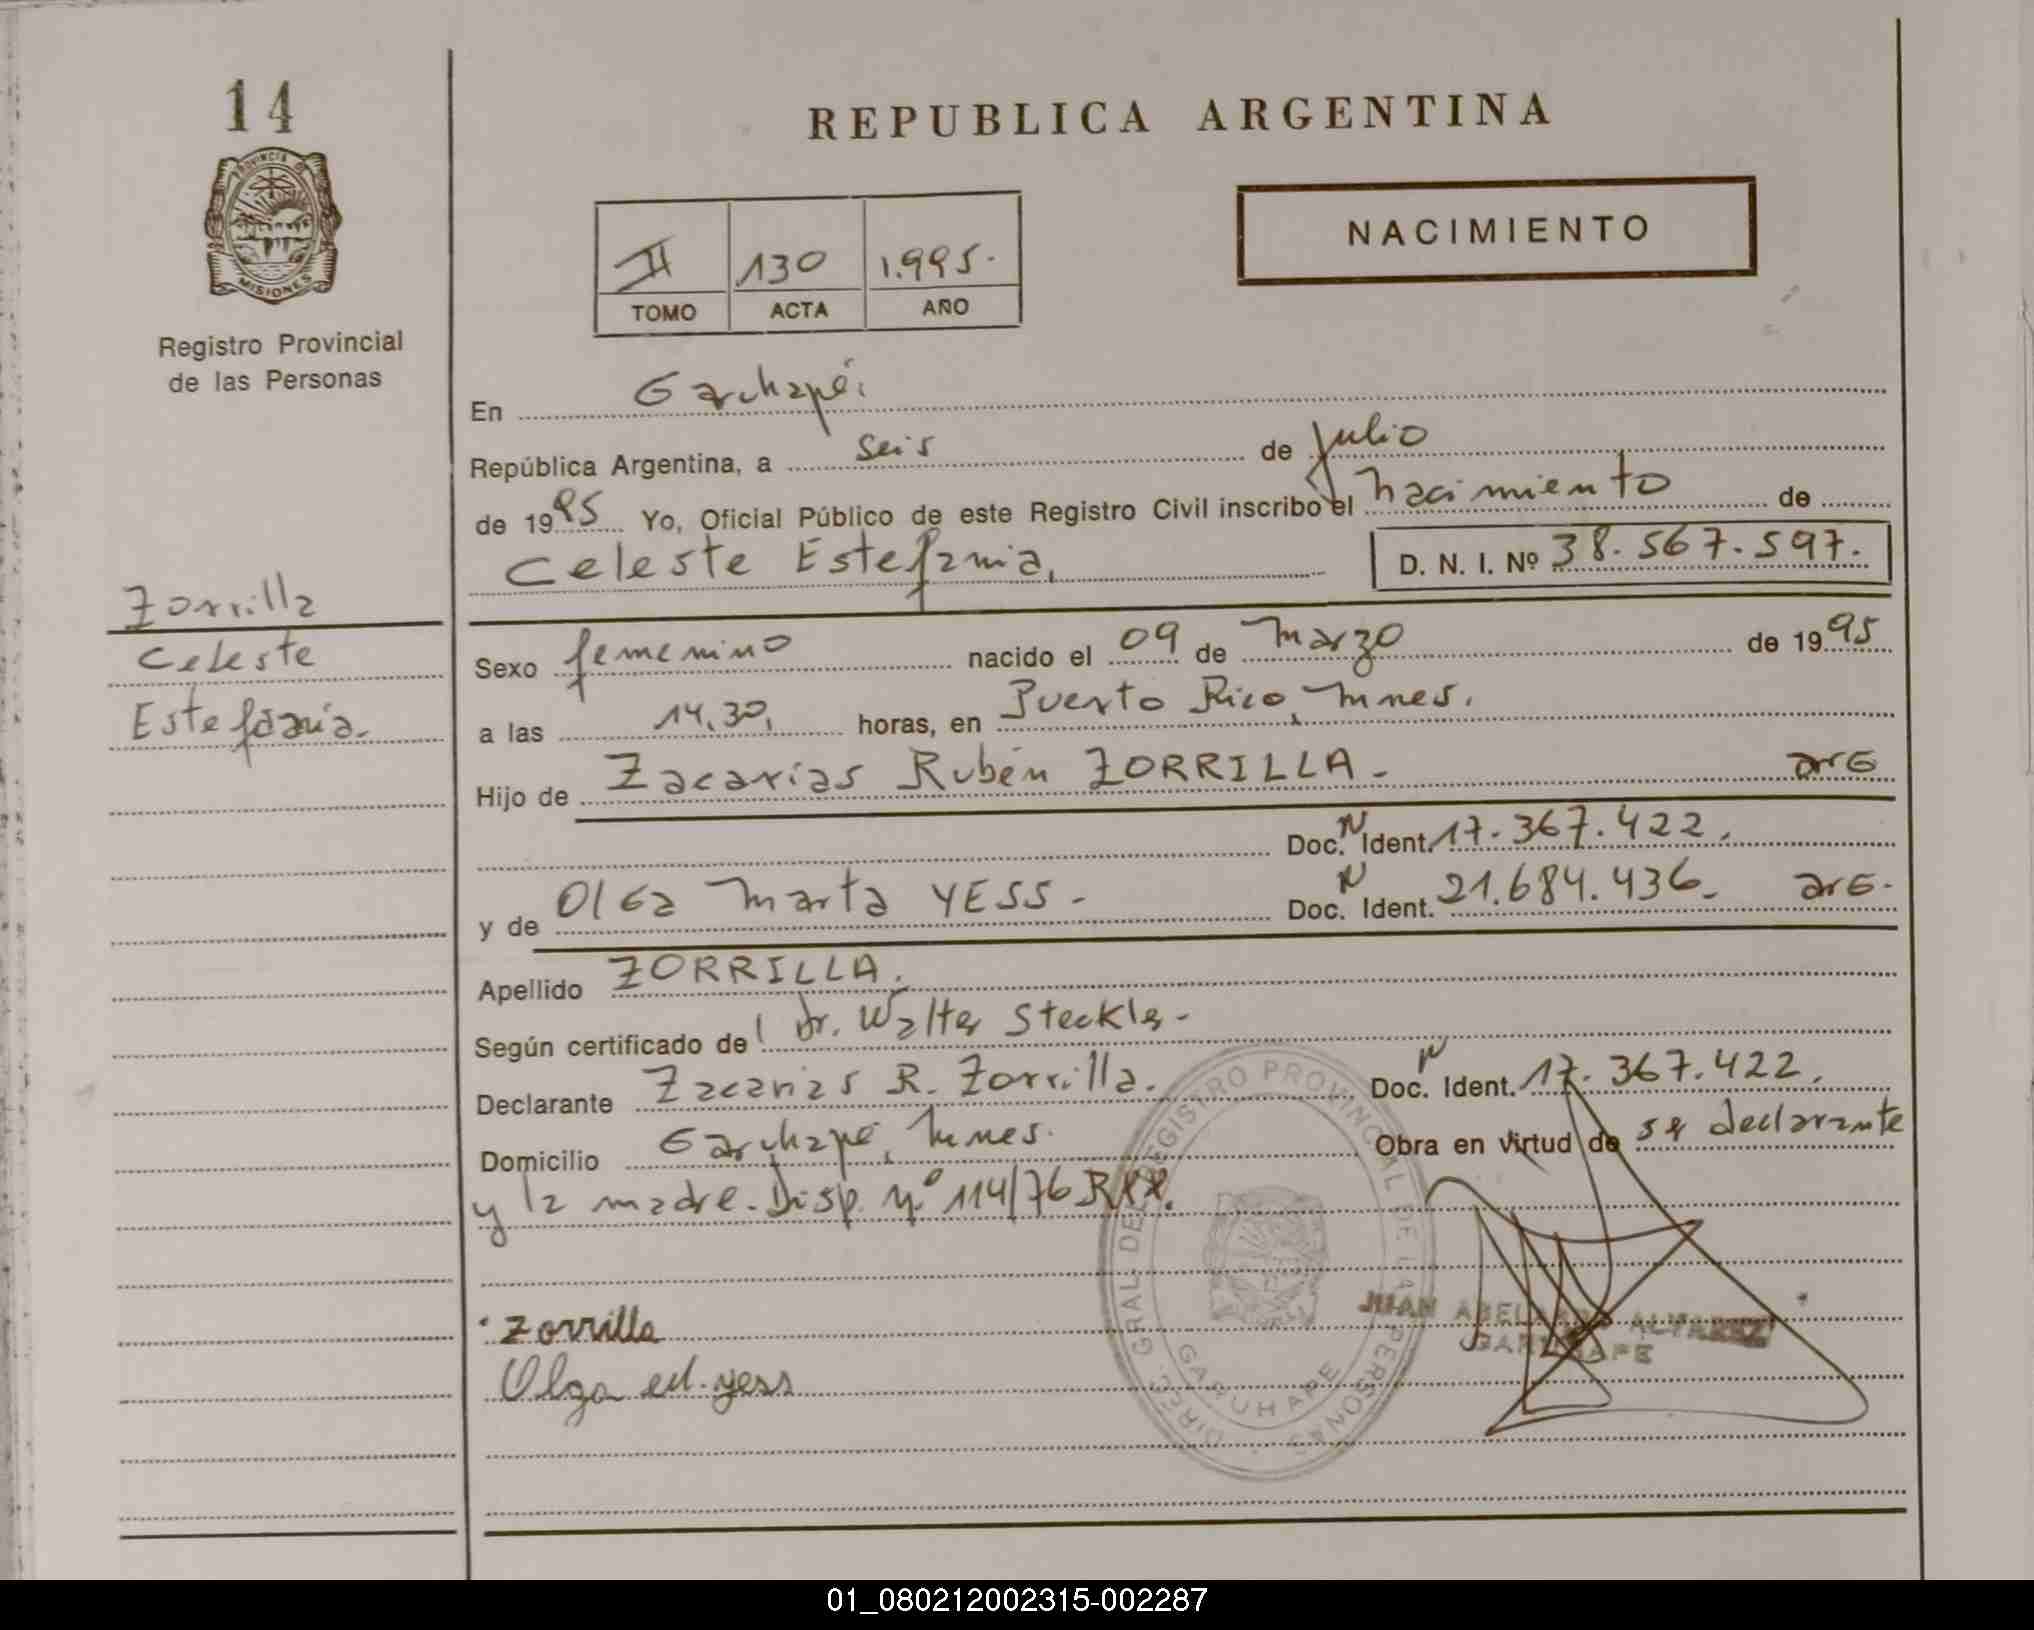 14
PROVINCIA DE
MISIONES
Registro Provincial
de las Personas
REPUBLICA ARGENTINA
NACIMIENTO
II 130 1.995.
TOMO ACTA AÑO
En Garuhapé.
República Argentina, a seis de Julio
de 1995 Yo, Oficial Público de este Registro Civil inscribo el nacimiento de
Celeste Estefania, D. N. I. Nº 38.567.597.
Zorrilla
Celeste
Estefania.
Sexo femenino nacido el 09 de Marzo de 1995
a las 14,30, horas, en Puerto Rico, Mnes.
Hijo de Zacarías Rubén ZORRILLA - arG
Doc. N Ident. 17.367.422.
y de OlGa Marta YESS - Doc. N Ident. 21.684.436. arG.
Apellido ZORRILLA.
Según certificado de Dr. Walter Steckler -
Declarante Zacarias R. Zorrilla. Doc. N Ident. 17.367.422.
Domicilio Garuhapé, Mnes. Obra en virtud de ser declarante
y la madre. Disp. Nº 114/76 R
Zorrilla
Olga yess
DIREC. GRAL. DEL REGISTRO PROVINCIAL DE LAS PERSONAS
GARUHAPE
JUAN ABELARDO ALVAREZ
GARUHAPE
01_080212002315-002287